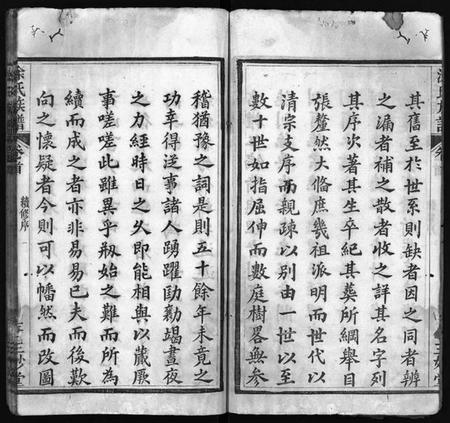 其舊至於世系則缺者因之同者辨
之漏者補之散者收之詳其名字列
其序次著其生卒紀其葬所綱舉目
張釐然大俻庶幾祖派明而世代以
清宗支序而親疎以別由一世以至
數十世如指屈伸而數庭樹畧無參
稽猶豫之詞是則五十餘年未竟之
功幸得泛事諸人踴躍勷勷竭晝夜
之力經時日之久即能相與以蕆厥
事嗟嗟此雖異乎剏始之難而所為
續而成之者亦非易易已夫而後歎
向之懷疑者今則可以幡然而改圖
涂氏族譜
卷首
續修序